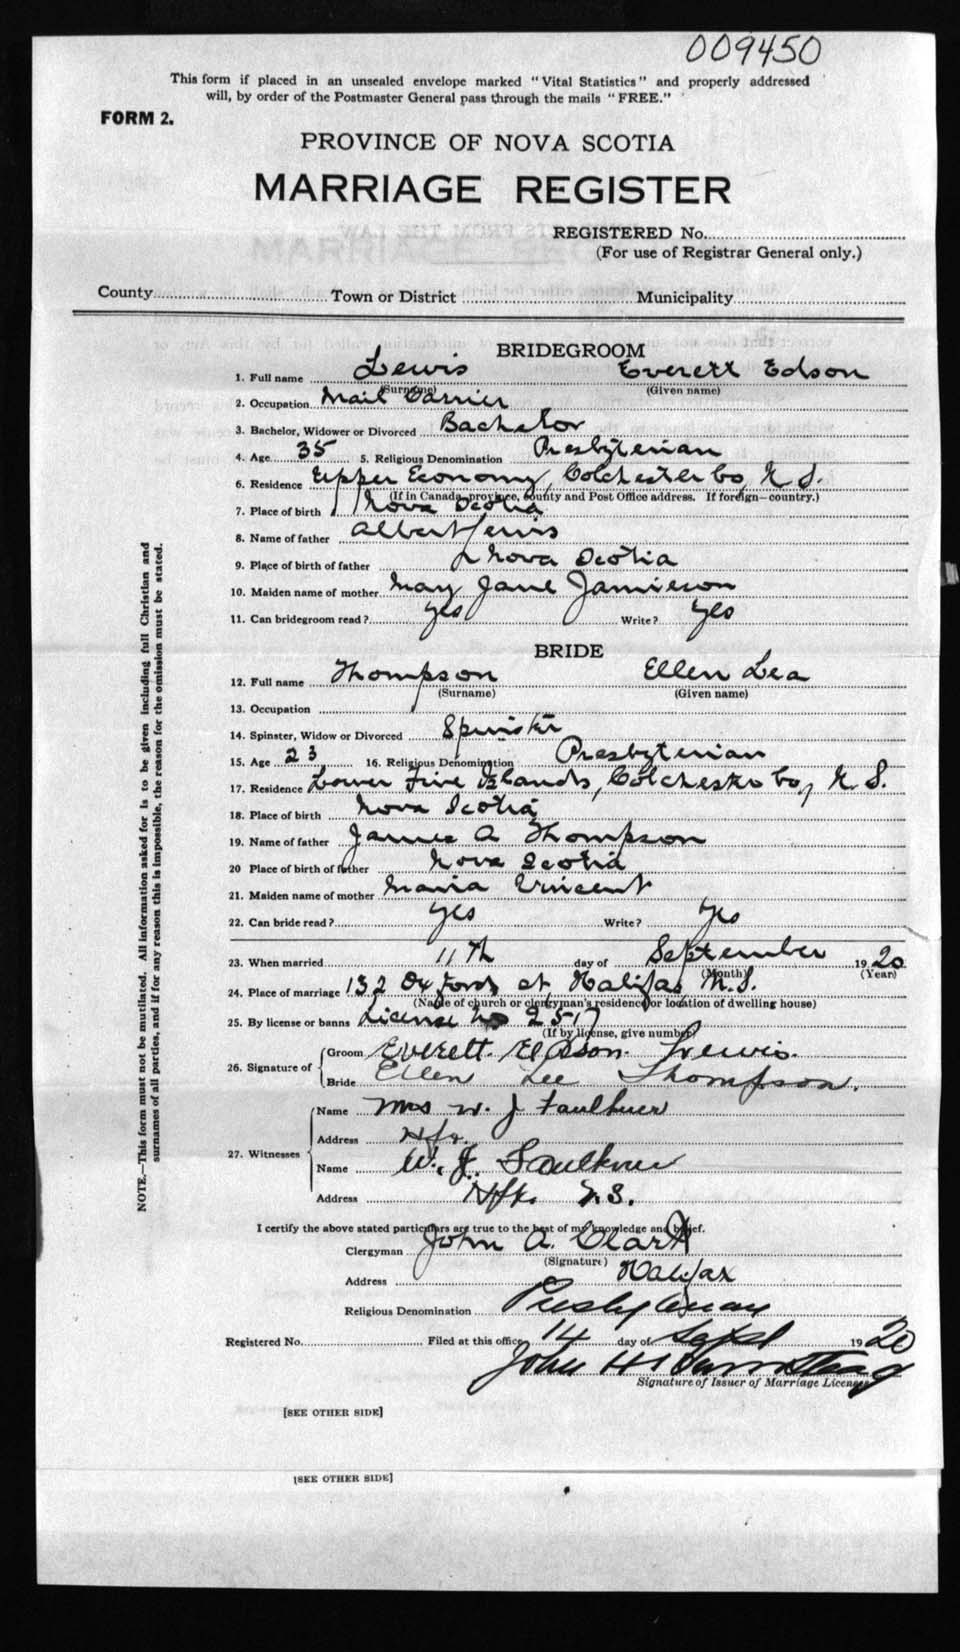 009450
This form if placed in an unsealed envelope marked "Vital Statistics" and properly addressed
will, by order of the Postmaster General pass through the mails "FREE."
FORM 2.
PROVINCE OF NOVA SCOTIA
MARRIAGE REGISTER
REGISTERED No.
(For use of Registrar General only.)
County Town or District Municipality
BRIDEGROOM
1. Full name Lewis Everett Edson
(Surname) (Given name)
2. Occupation Mail Carrier
3. Bachelor, Widower or Divorced Bachelor
4. Age 35 5. Religious Denomination Presbyterian
6. Residence Upper Economy, Colchester Co, N S.
(If in Canada, province, county and Post Office address. If foreign—country.)
7. Place of birth Nova Scotia
8. Name of father Albert Lewis
9. Place of birth of father Nova Scotia
10. Maiden name of mother May Jane Jamieson
11. Can bridegroom read? Yes Write? Yes
BRIDE
12. Full name Thompson Ellen Lea
(Surname) (Given name)
13. Occupation
14. Spinster, Widow or Divorced Spinster
15. Age 23 16. Religious Denomination Presbyterian
17. Residence Lower Five Islands, Colchester Co, N. S.
18. Place of birth Nova Scotia
19. Name of father James A Thompson
20 Place of birth of father Nova Scotia
21. Maiden name of mother Maria Vincent
22. Can bride read? Yes Write? Yes
23. When married 11th day of September 1920
(Month) (Year)
24. Place of marriage 132 Oxford St Halifax N.S.
(Name of church or clergyman's residence or location of dwelling house)
25. By license or banns License No 2517
(If by license, give number)
26. Signature of Groom Everett. Edson. Lewis.
Bride Ellen Lee Thompson.
27. Witnesses Name Mrs W. J Faulkner
Address Hfx.
Name W. J. Faulkner
Address Hfx. N.S.
I certify the above stated particulars are true to the best of my knowledge and belief.
Clergyman John A. Clark
(Signature)
Address Halifax
Religious Denomination Presbyterian
Registered No. Filed at this office 14 day of Sept 1920
John H
Signature of Issuer of Marriage Licenses
[SEE OTHER SIDE]
[SEE OTHER SIDE]
NOTE.—This form must not be mutilated. All information asked for is to be given including full Christian and
surnames of all parties, and if for any reason this is impossible, the reason for the omission must be stated.